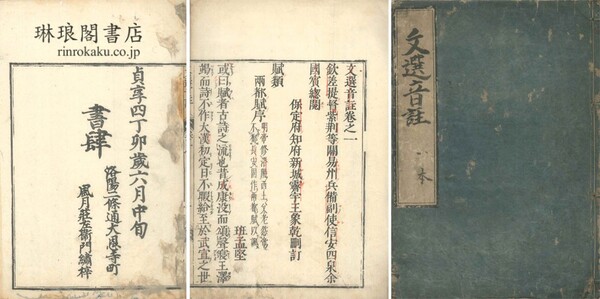 琳琅閣書店
rinrokaku.co.jp
貞享四丁卯歳六月中旬
書肆
洛陽二條通大恩寺町
風月莊左衛門繡梓
文選音註卷之一
欽差提督紫荊等關易州兵備副使信安四泉余
國賓總閱
保定府知府新城霽宇王象乾刪訂
賦類
兩都賦序
班孟堅
或曰賦者古詩之流也昔成康没而頌聲寢王澤
竭而詩不作大漢初定日不暇給至於武宣之世
文選音註